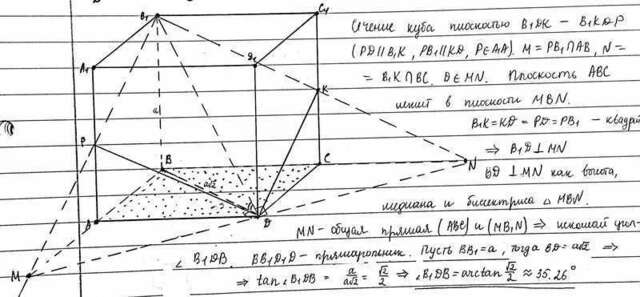 B₁
C₁
A₁
D₁
K
a
P
B
C
N
a√2
A
D
M
Сечение куба плоскостью B₁DK – B₁KDP
(PD∥B₁K, PB₁∥KD, P∈AA₁). M = PB₁∩AB, N =
= B₁K∩BC. D∈MN. Плоскость ABC
лежит в плоскости MBN.
B₁K=KD=PD=PB₁ – квадрат
⇒ B₁D⊥MN
BD⊥MN как высота,
медиана и биссектриса △MBN.
MN – общая прямая (ABC) и (MB₁N) ⇒ искомый угол –
∠B₁DB. BB₁D₁D – прямоугольник. Пусть BB₁=a, тогда BD=a√2 ⇒
⇒ tan∠B₁DB = a/a√2 = √2/2 ⇒ ∠B₁DB=arctan √2/2 ≈ 35.26°